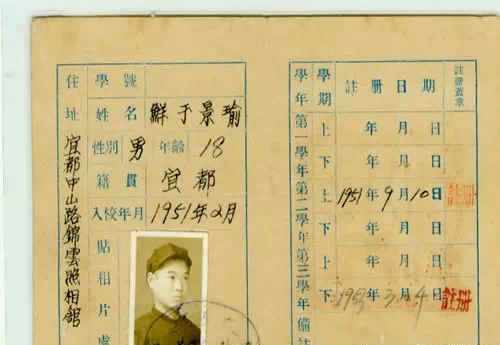 學號
姓名 鮮于景瑜
性別 男 年齡 18
籍貫 宜都
入校年月 1951年2月
貼相片處
住址 宜都中山路錦雲照相舘
學年 學期 註册日期 註册蓋章
第一學年 上 年 月 日
下 年 月 日
第二學年 上 1951年9月10日 註册
下 年 月 日
第三學年 上 年 月 日
下 月 4日 註册
備註